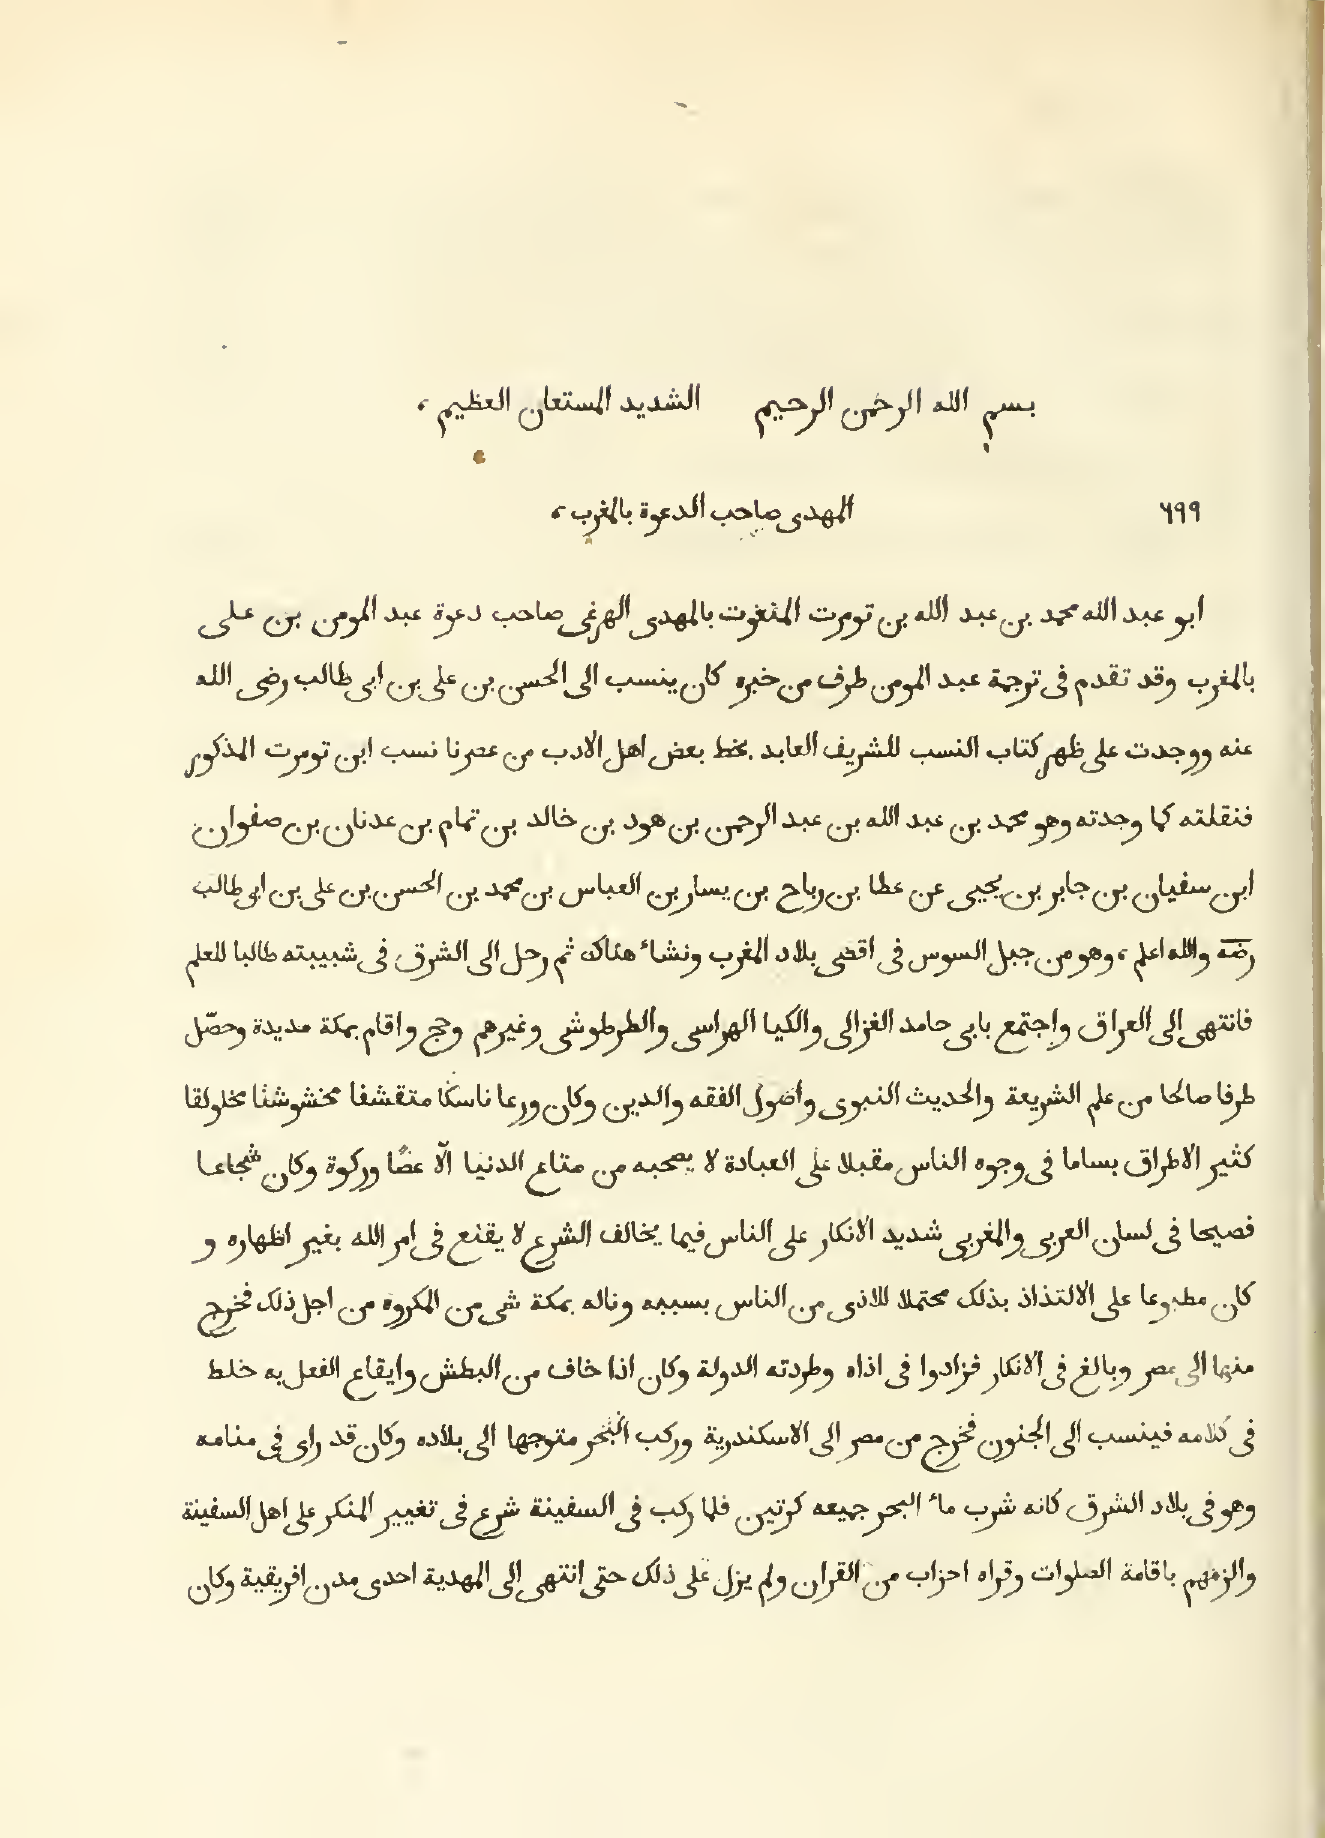 بسم الله الرحمن الرحيم الشديد المستعان العظيم ،
٦٩٩ المهدى صاحب الدعوة بالمغرب ،
ابو عبد الله محمد بن عبد الله بن تومرت المنعوت بالمهدى الهرغى صاحب دعوة عبد المومن بن على
بالمغرب وقد تقدم فى ترجمة عبد المومن طرف من خبره كان ينسب الى الحسن بن على بن ابى طالب رضى الله
عنه ووجدت على ظهر كتاب النسب للشريف العابد بخط بعض اهل الادب من عصرنا نسب ابن تومرت المذكور
فنقلته كما وجدته وهو محمد بن عبد الله بن عبد الرحمن بن هود بن خالد بن تمام بن عدنان بن صفوان
ابن سفيان بن جابر بن يحيى عن عطا بن رباح بن يسار بن العباس بن محمد بن الحسن بن على بن ابى طالب
رضه والله اعلم ، وهو من جبل السوس فى اقصى بلاد المغرب ونشاء هناك ثم رحل الى الشرق فى شبيبته طالبا للعلم
فانتهى الى العراق واجتمع بابى حامد الغزالى والكيا الهراسى والطرطوشى وغيرهم وحج واقام بمكة مديدة وحصّل
طرفا صالحا من علم الشريعة والحديث النبوى واصول الفقه والدين وكان ورعا ناسكا متقشفا مخشوشنا مخلولقا
كثير الاطراق بساما فى وجوه الناس مقبلا على العبادة لا يصحبه من متاع الدنيا الّا عصًا وركوة وكان شجاعا
فصيحا فى لسان العربى والمغربى شديد الانكار على الناس فيما يخالف الشرع لا يقنع فى امر الله بغير اظهاره و
كان مطبوعا على الالتذاذ بذلك محتملا للاذى من الناس بسببه وناله بمكة شى من المكروه من اجل ذلك فخرج
منها الى مصر وبالغ فى الانكار فزادوا فى اذاه وطردته الدولة وكان اذا خاف من البطش وايقاع الفعل به خلط
فى كلامه فينسب الى الجنون فخرج من مصر الى الاسكندرية وركب البحر متوجها الى بلاده وكان قد راى فى منامه
وهو فى بلاد الشرق كانه شرب ماء البحر جميعه كرتين فلما ركب فى السفينة شرع فى تغيير المنكر على اهل السفينة
والزمهم باقامة الصلوات وقراه احزاب من القران ولم يزل على ذلك حتى انتهى الى المهدية احدى مدن افريقية وكان